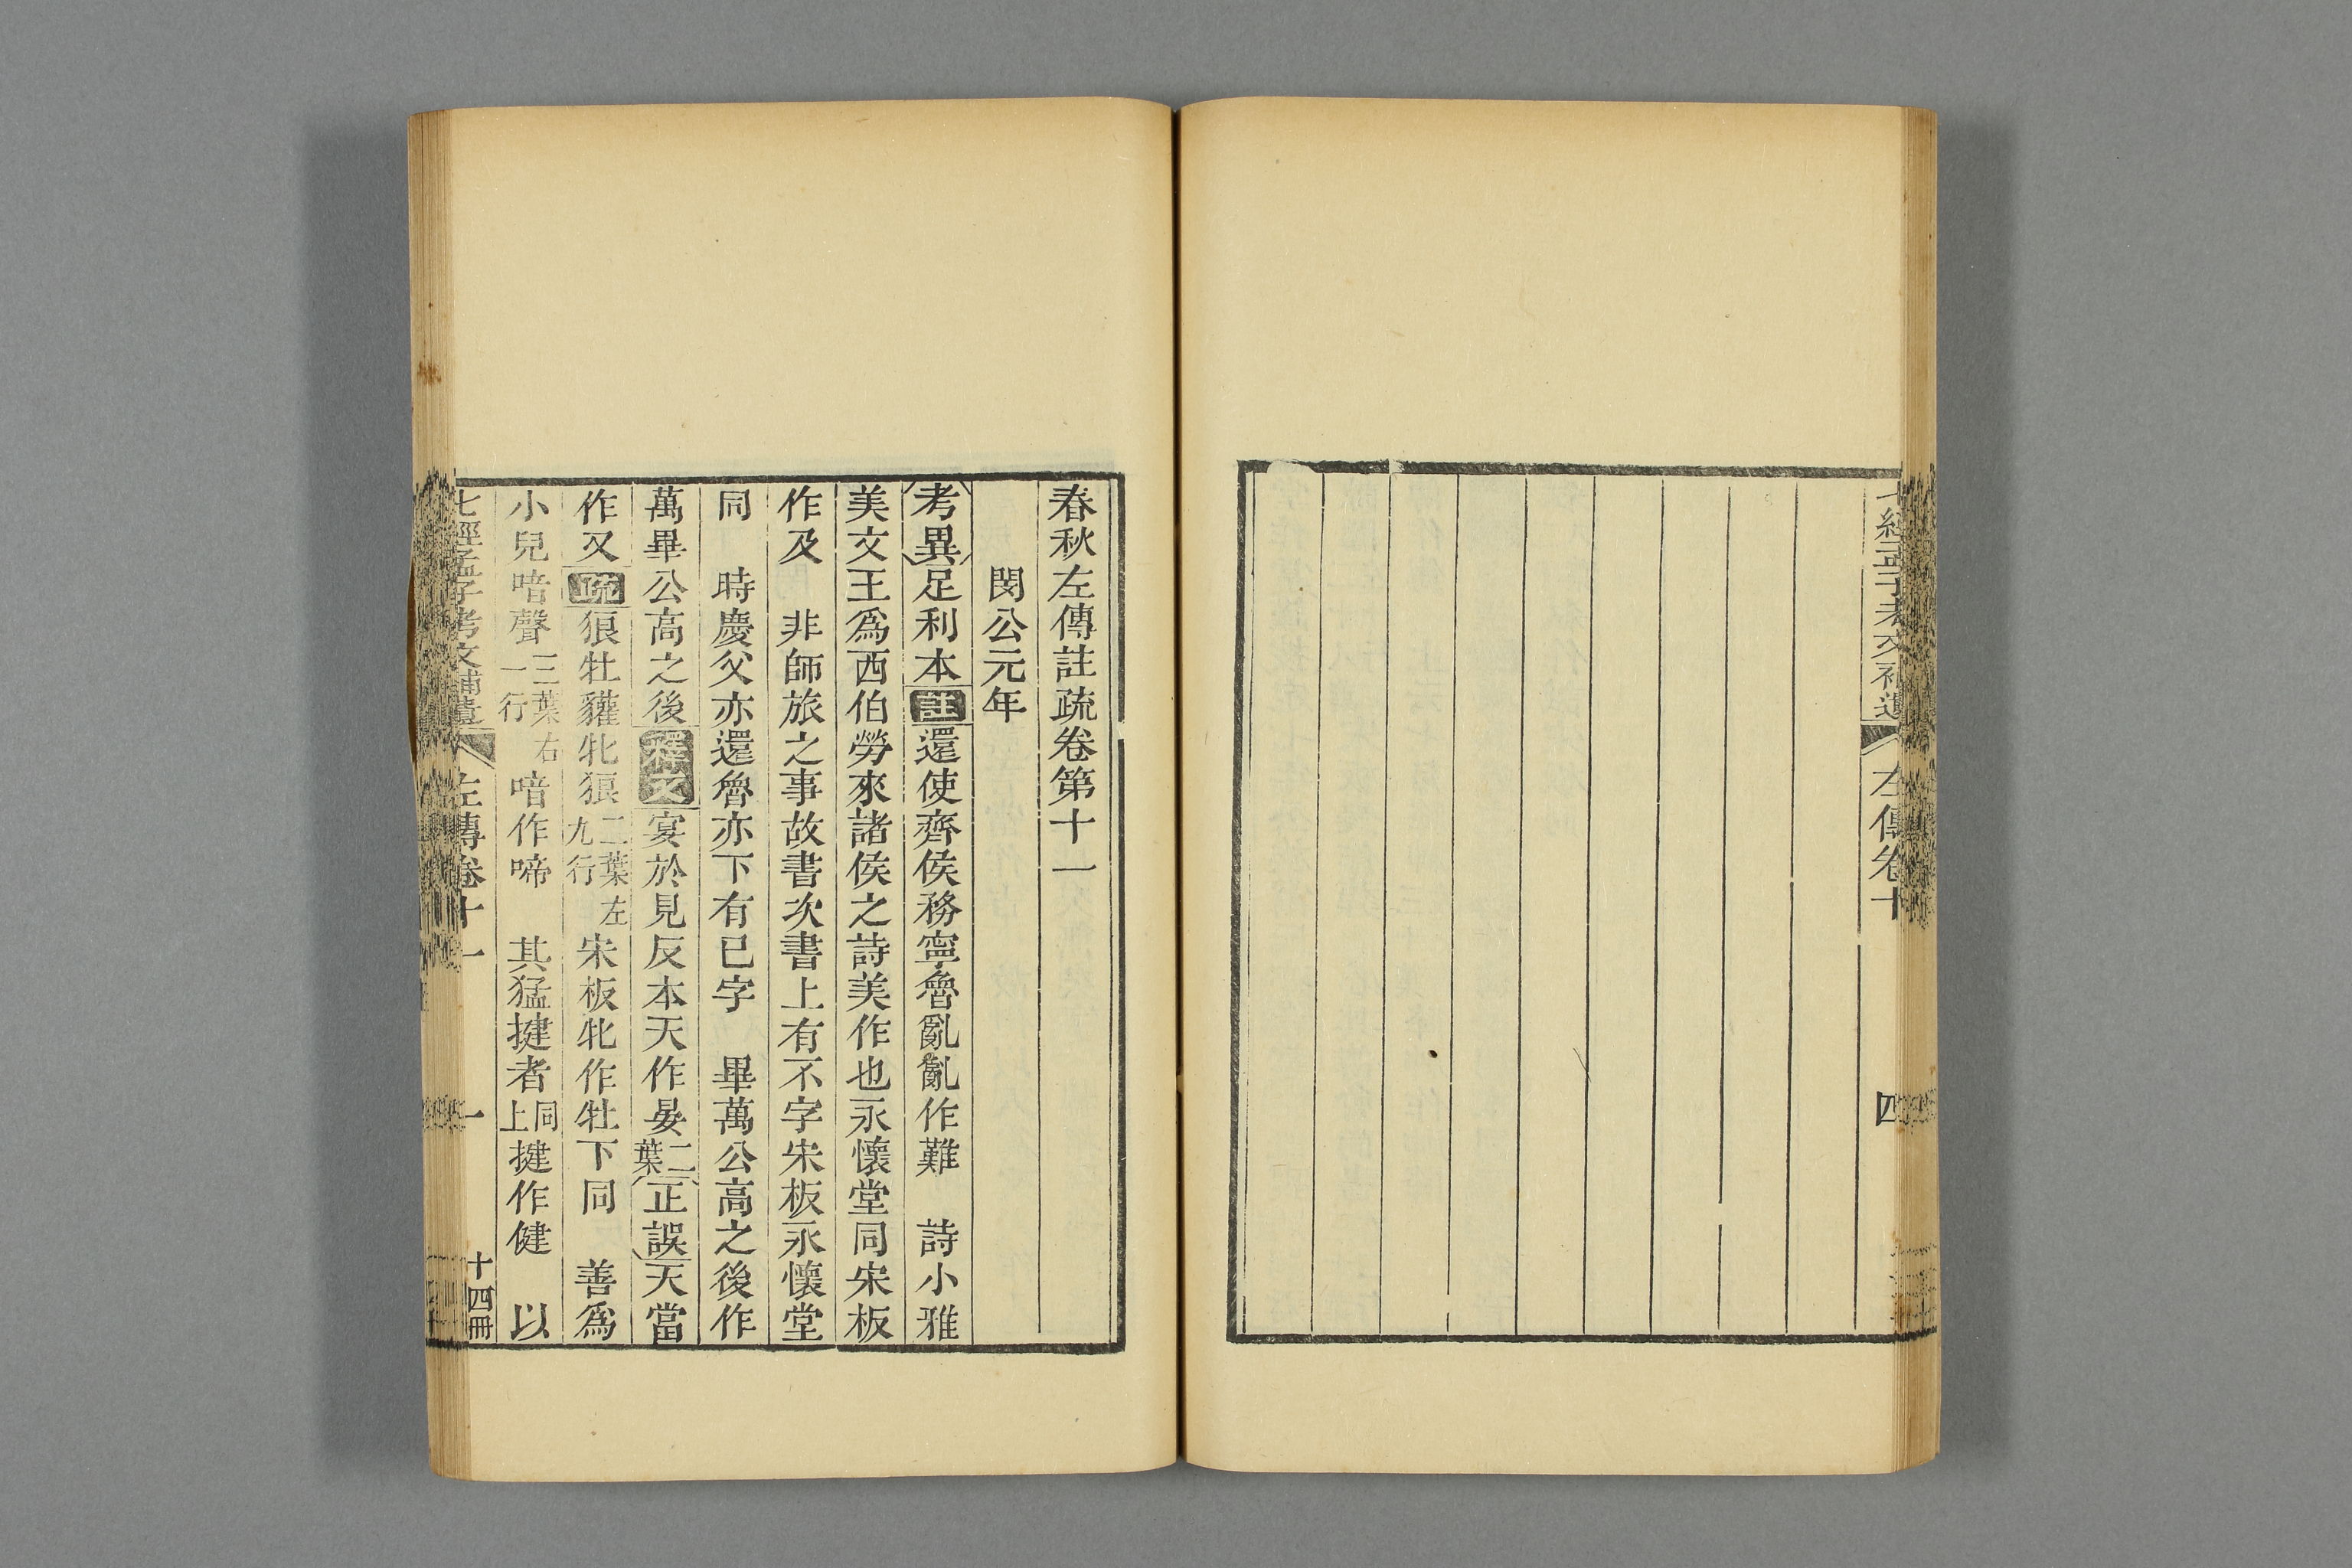 七經孟子考文補遺 左傳卷十 四
春秋左傳註疏卷第十一
閔公元年
考異足利本註還使齊侯務寧魯亂亂作難 詩小雅
美文王爲西伯勞來諸侯之詩美作也永懷堂同宋板
作及 非師旅之事故書次書上有不字宋板永懷堂
同 時慶父亦還魯亦下有已字 畢萬公高之後作
萬畢公高之後釋文宴於見反本天作晏二葉正誤天當
作又疏狼牡貛牝狼二葉左九行宋板牝作牡下同 善爲
小兒喑聲三葉右一行喑作啼 其猛揵者同上揵作健 以
七經孟子考文補遺 左傳卷十一 一 十四冊